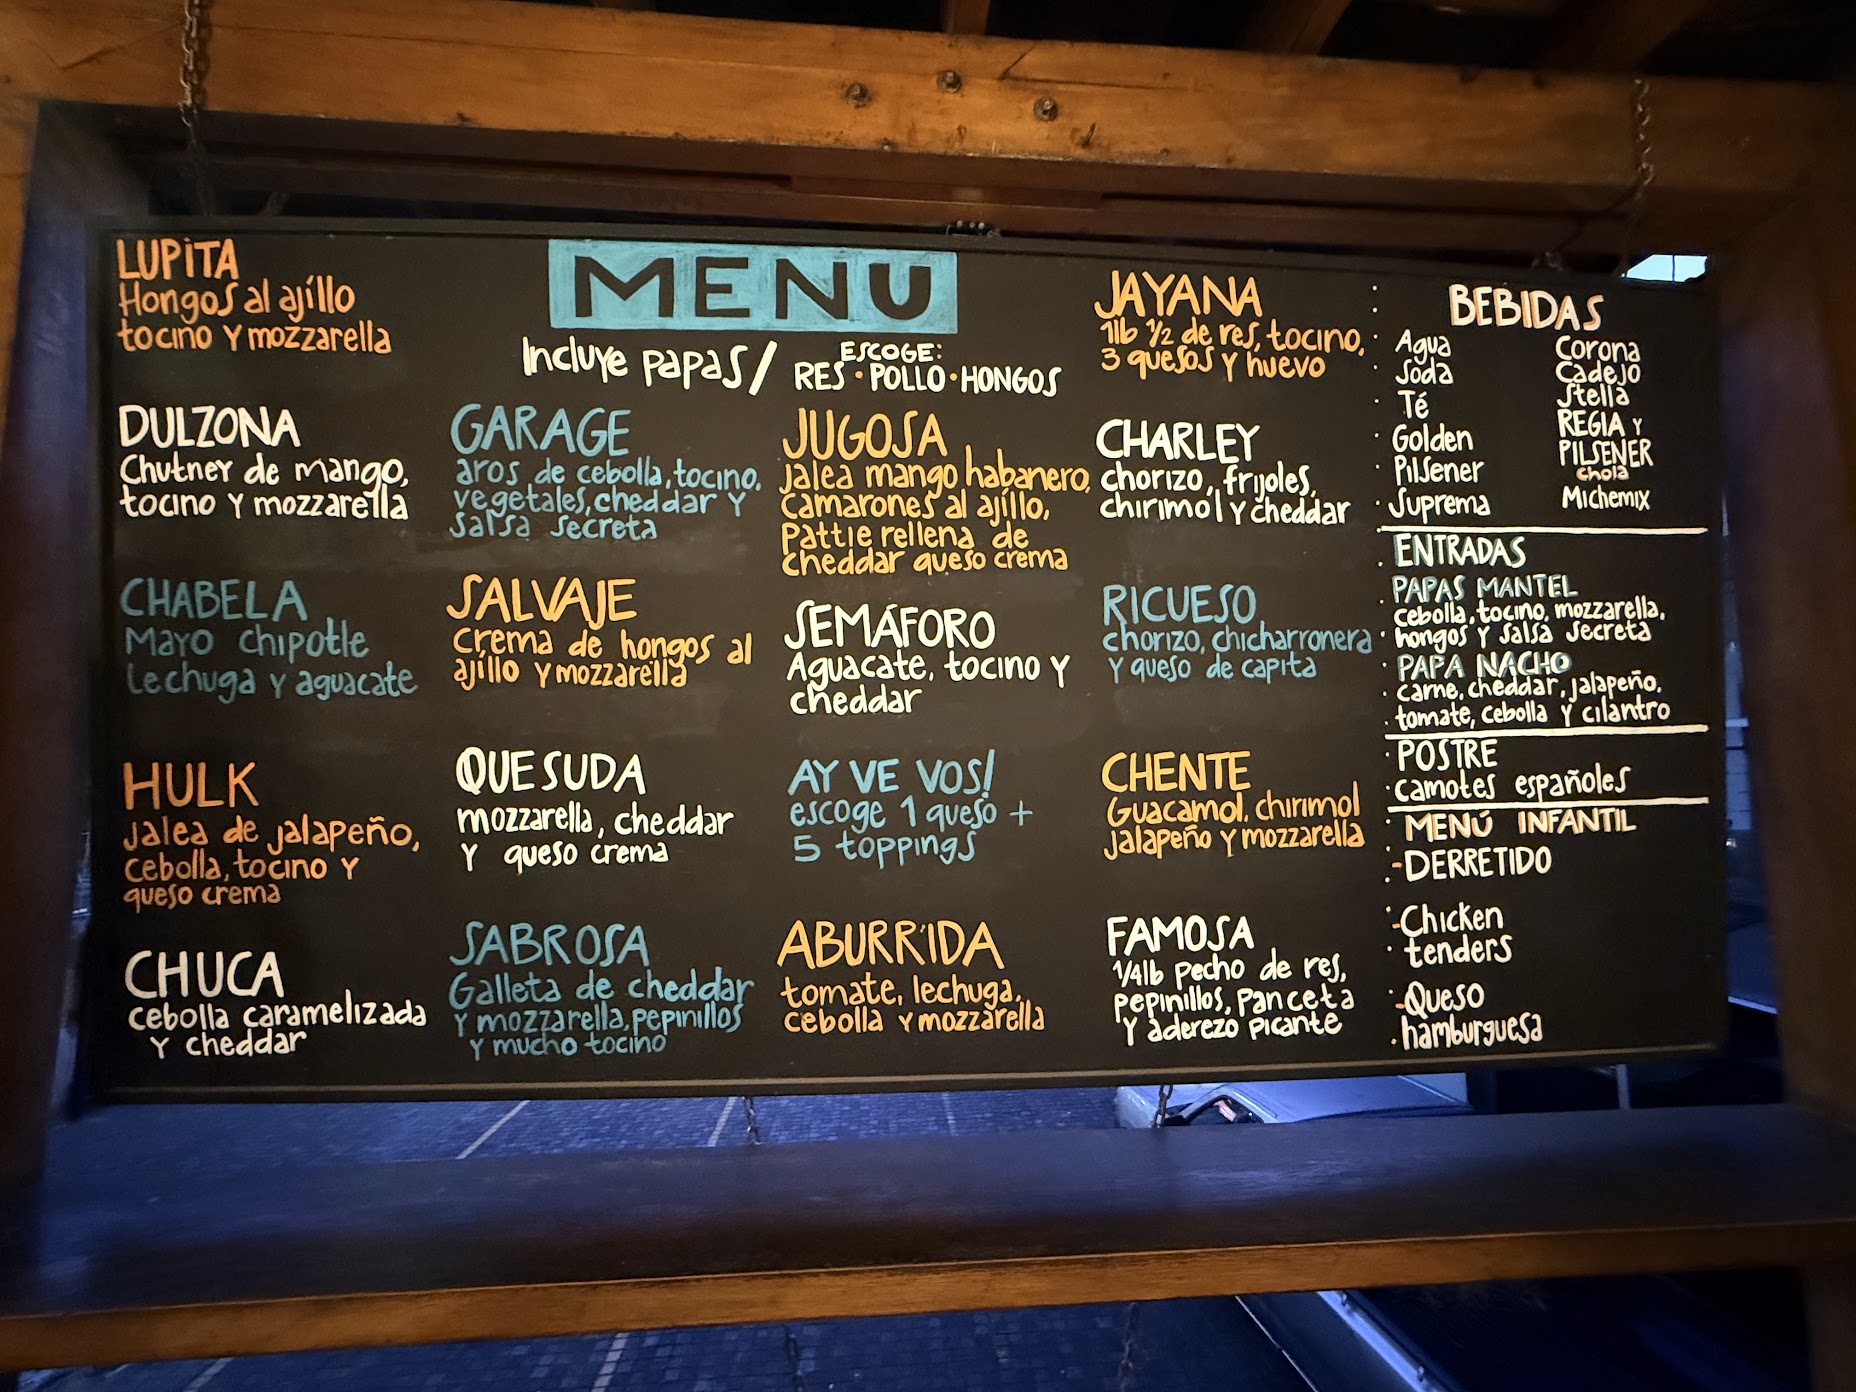 LUPITA
Hongos al ajillo
tocino y mozzarella
DULZONA
Chutney de mango,
tocino y mozzarella
CHABELA
Mayo chipotle
Lechuga y aguacate
HULK
Jalea de jalapeño,
cebolla, tocino y
queso crema
CHUCA
cebolla caramelizada
y cheddar
MENU
Incluye papas/
ESCOGE:
RES · POLLO · HONGOS
GARAGE
aros de cebolla, tocino,
vegetales, cheddar y
salsa secreta
SALVAJE
crema de hongos al
ajillo y mozzarella
QUESUDA
mozzarella, cheddar
y queso crema
SABROSA
Galleta de cheddar
y mozzarella, pepinillos
y mucho tocino
JUGOSA
Jalea mango habanero,
camarones al ajillo,
Pattie rellena de
cheddar queso crema
SEMÁFORO
Aguacate, tocino y
cheddar
AY VE VOS!
escoge 1 queso +
5 toppings
ABURRIDA
tomate, lechuga,
cebolla y mozzarella
JAYANA
1lb 1/2 de res, tocino,
3 quesos y huevo
CHARLEY
chorizo, frijoles,
chirimol y cheddar
RICUESO
chorizo, chicharronera
y queso de capita
CHENTE
Guacamol, chirimol
jalapeño y mozzarella
FAMOSA
1/4lb pecho de res,
pepinillos, panceta
y aderezo picante
BEBIDAS
Agua
Soda
Té
Golden
Pilsener
Suprema
Corona
Cadejo
Stella
REGIA y
PILSENER
chola
Michemix
ENTRADAS
PAPAS MANTEL
cebolla, tocino, mozzarella,
hongos y salsa secreta
PAPA NACHO
carne, cheddar, jalapeño,
tomate, cebolla y cilantro
POSTRE
camotes españoles
MENÚ INFANTIL
-DERRETIDO
-Chicken
tenders
-Queso
hamburguesa